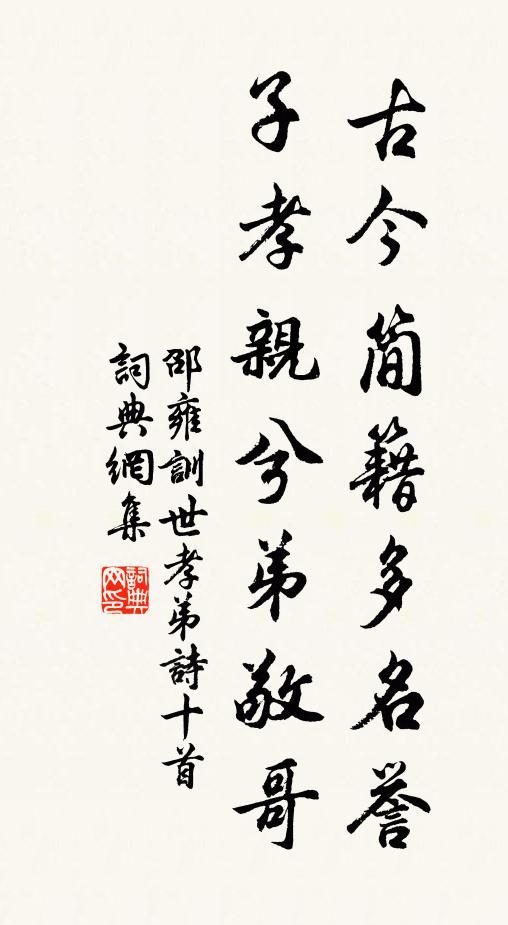 古今簡籍多名譽
子孝親兮弟敬哥
邵雍訓世孝弟詩十首
詞典網集
詞典
网印